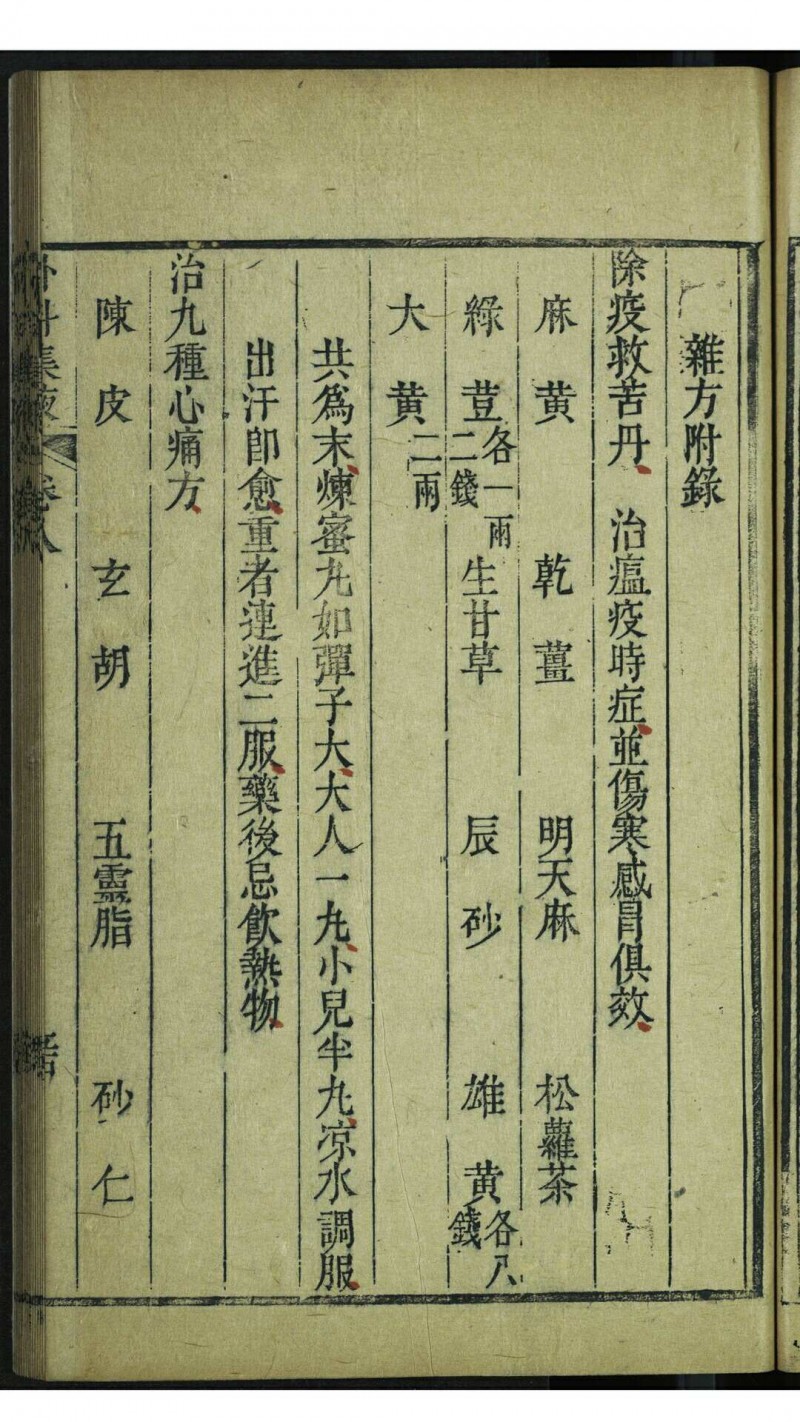 雜方附錄
除疫救苦丹 治瘟疫時症並傷寒感冒俱效
麻黄 乾薑 明天麻 松蘿茶
綠荳各一兩二錢 生甘草 辰砂 雄黄各八錢
大黄二兩
共爲末煉蜜丸如彈子大大人一丸小兒半丸凉水調服
出汗卽愈重者連進二服藥後忌飲熱物
治九種心痛方
陳皮 玄胡 五靈脂 砂仁
卷八